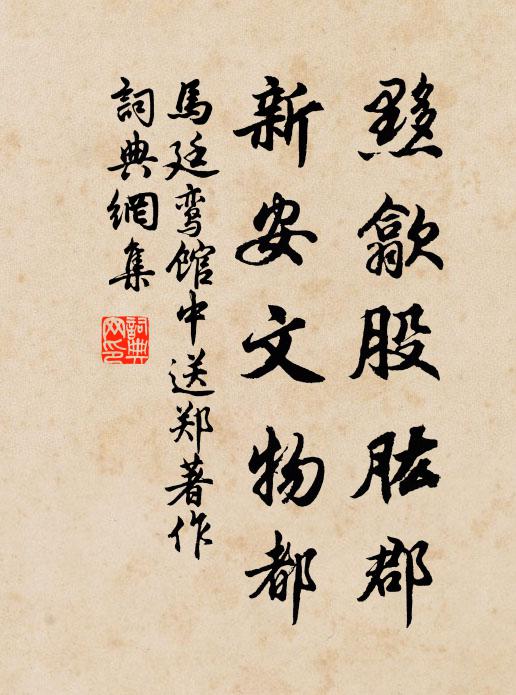 黟歙股肱郡
新安文物都
馬廷鸾館中送郑著作
詞典網集
詞典網印